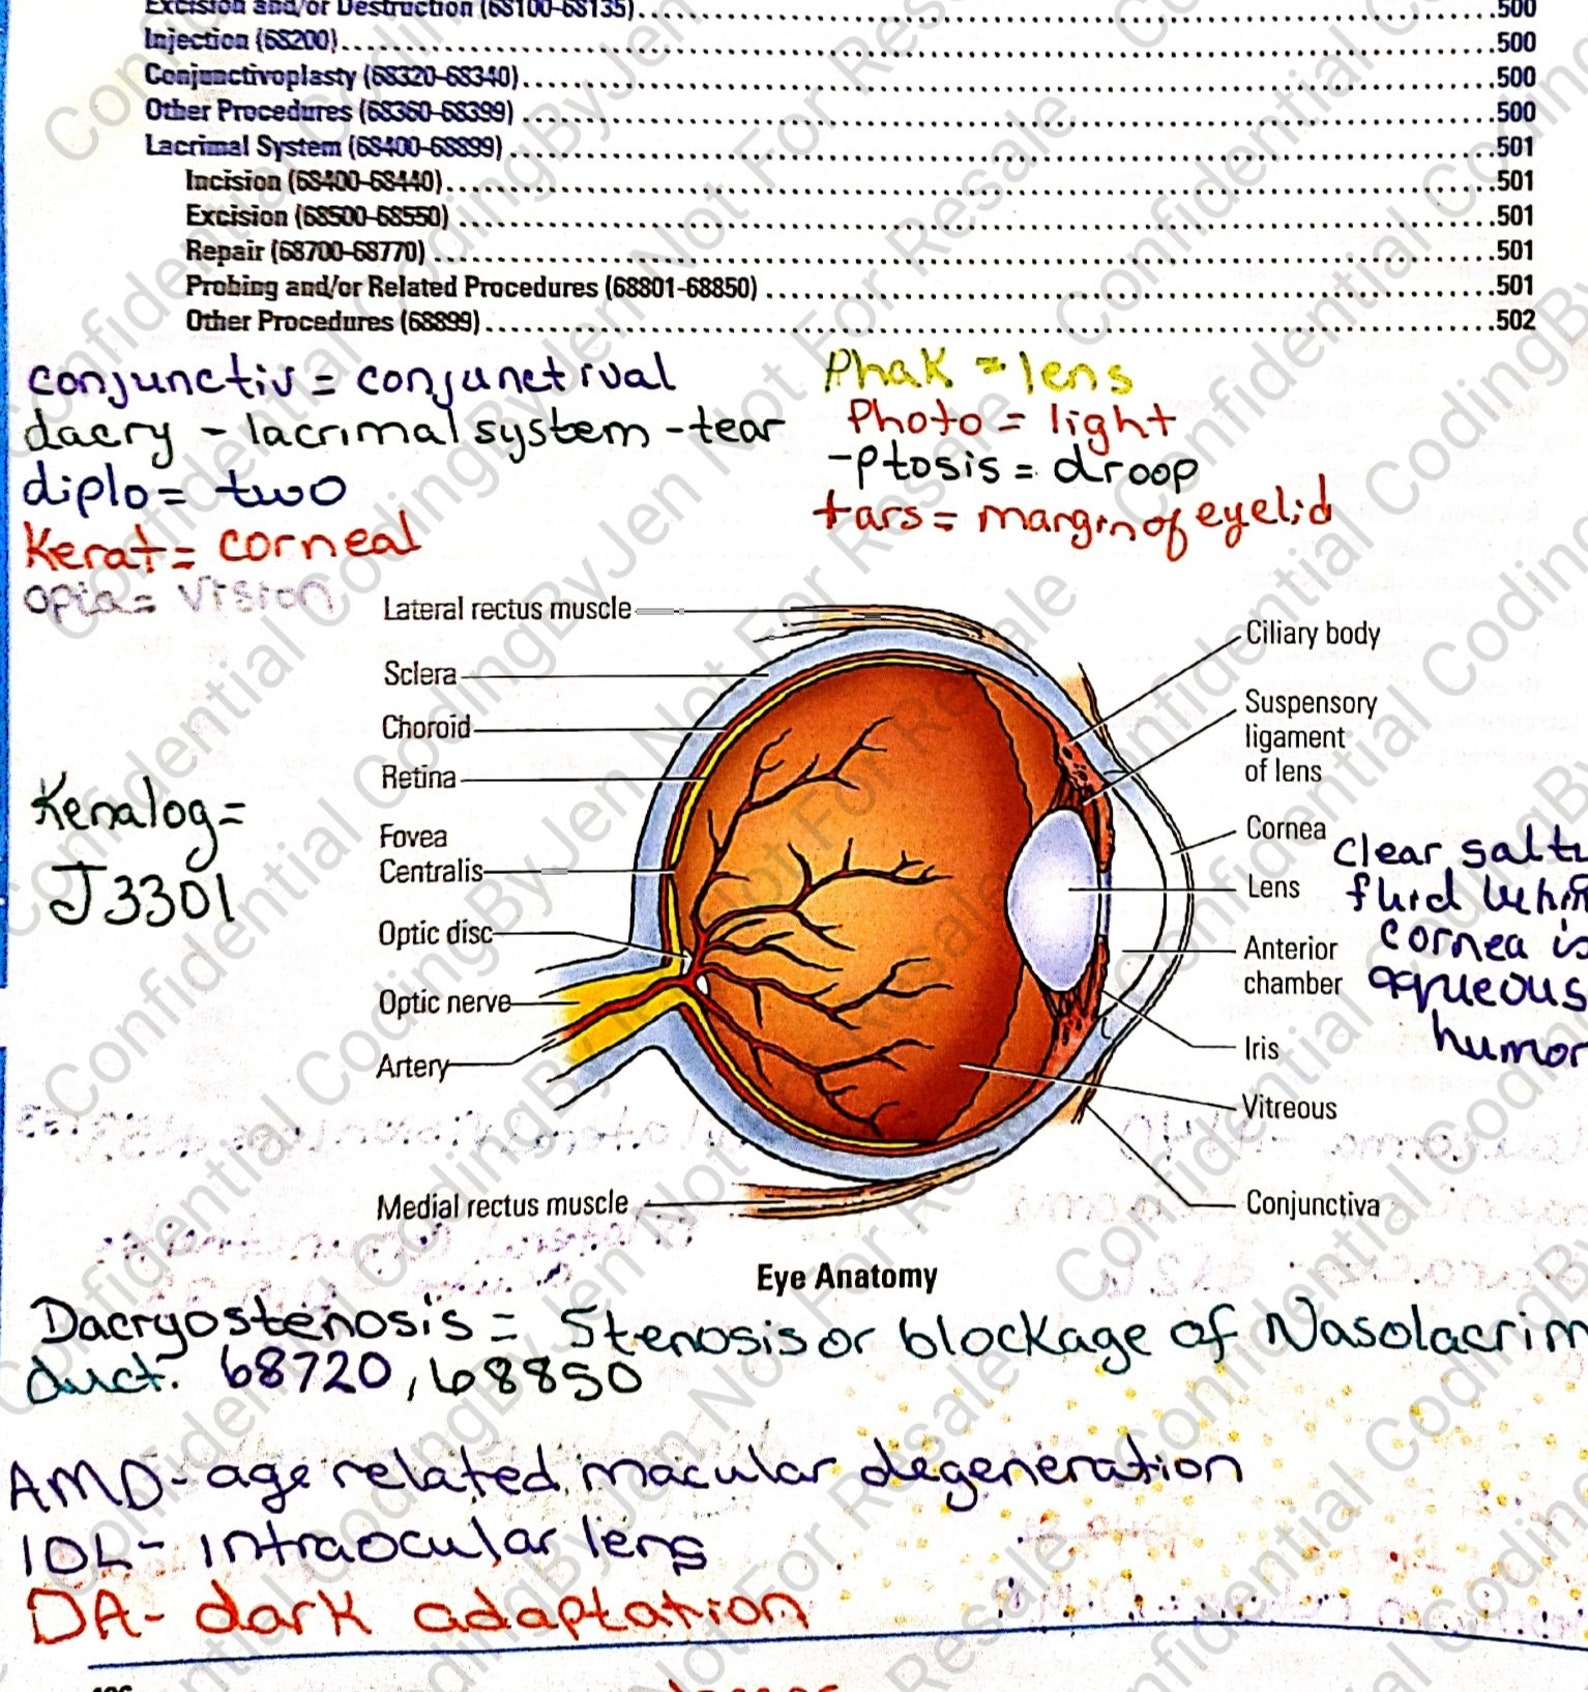 Excision and/or Destruction (68100-68135) 500
Injection (68200) 500
Conjunctivoplasty (68320-68340) 500
Other Procedures (68360-68399) 500
Lacrimal System (68400-68899) 501
Incision (68400-68440) 501
Excision (68500-68550) 501
Repair (68700-68770) 501
Probing and/or Related Procedures (68801-68850) 501
Other Procedures (68899) 502
conjunctiv = conjunctival
dacry - lacrimal system - tear
diplo = two
Kerat = corneal
opia = vision
Phak = lens
Photo = light
-ptosis = droop
tars = margin of eyelid
Lateral rectus muscle
Sclera
Choroid
Retina
Fovea
Centralis
Optic disc
Optic nerve
Artery
Medial rectus muscle
Ciliary body
Suspensory
ligament
of lens
Cornea
Lens
Anterior
chamber
Iris
Vitreous
Conjunctiva
Kenalog =
J3301
clear salt
fluid
cornea is
aqueous
humor
Eye Anatomy
Dacryostenosis = Stenosis or blockage of Nasolacrim
duct. 68720, 68850
AMD - age related macular degeneration
IOL - intraocular lens
DA - dark adaptation
Confidential CodingByJen Not For Resale